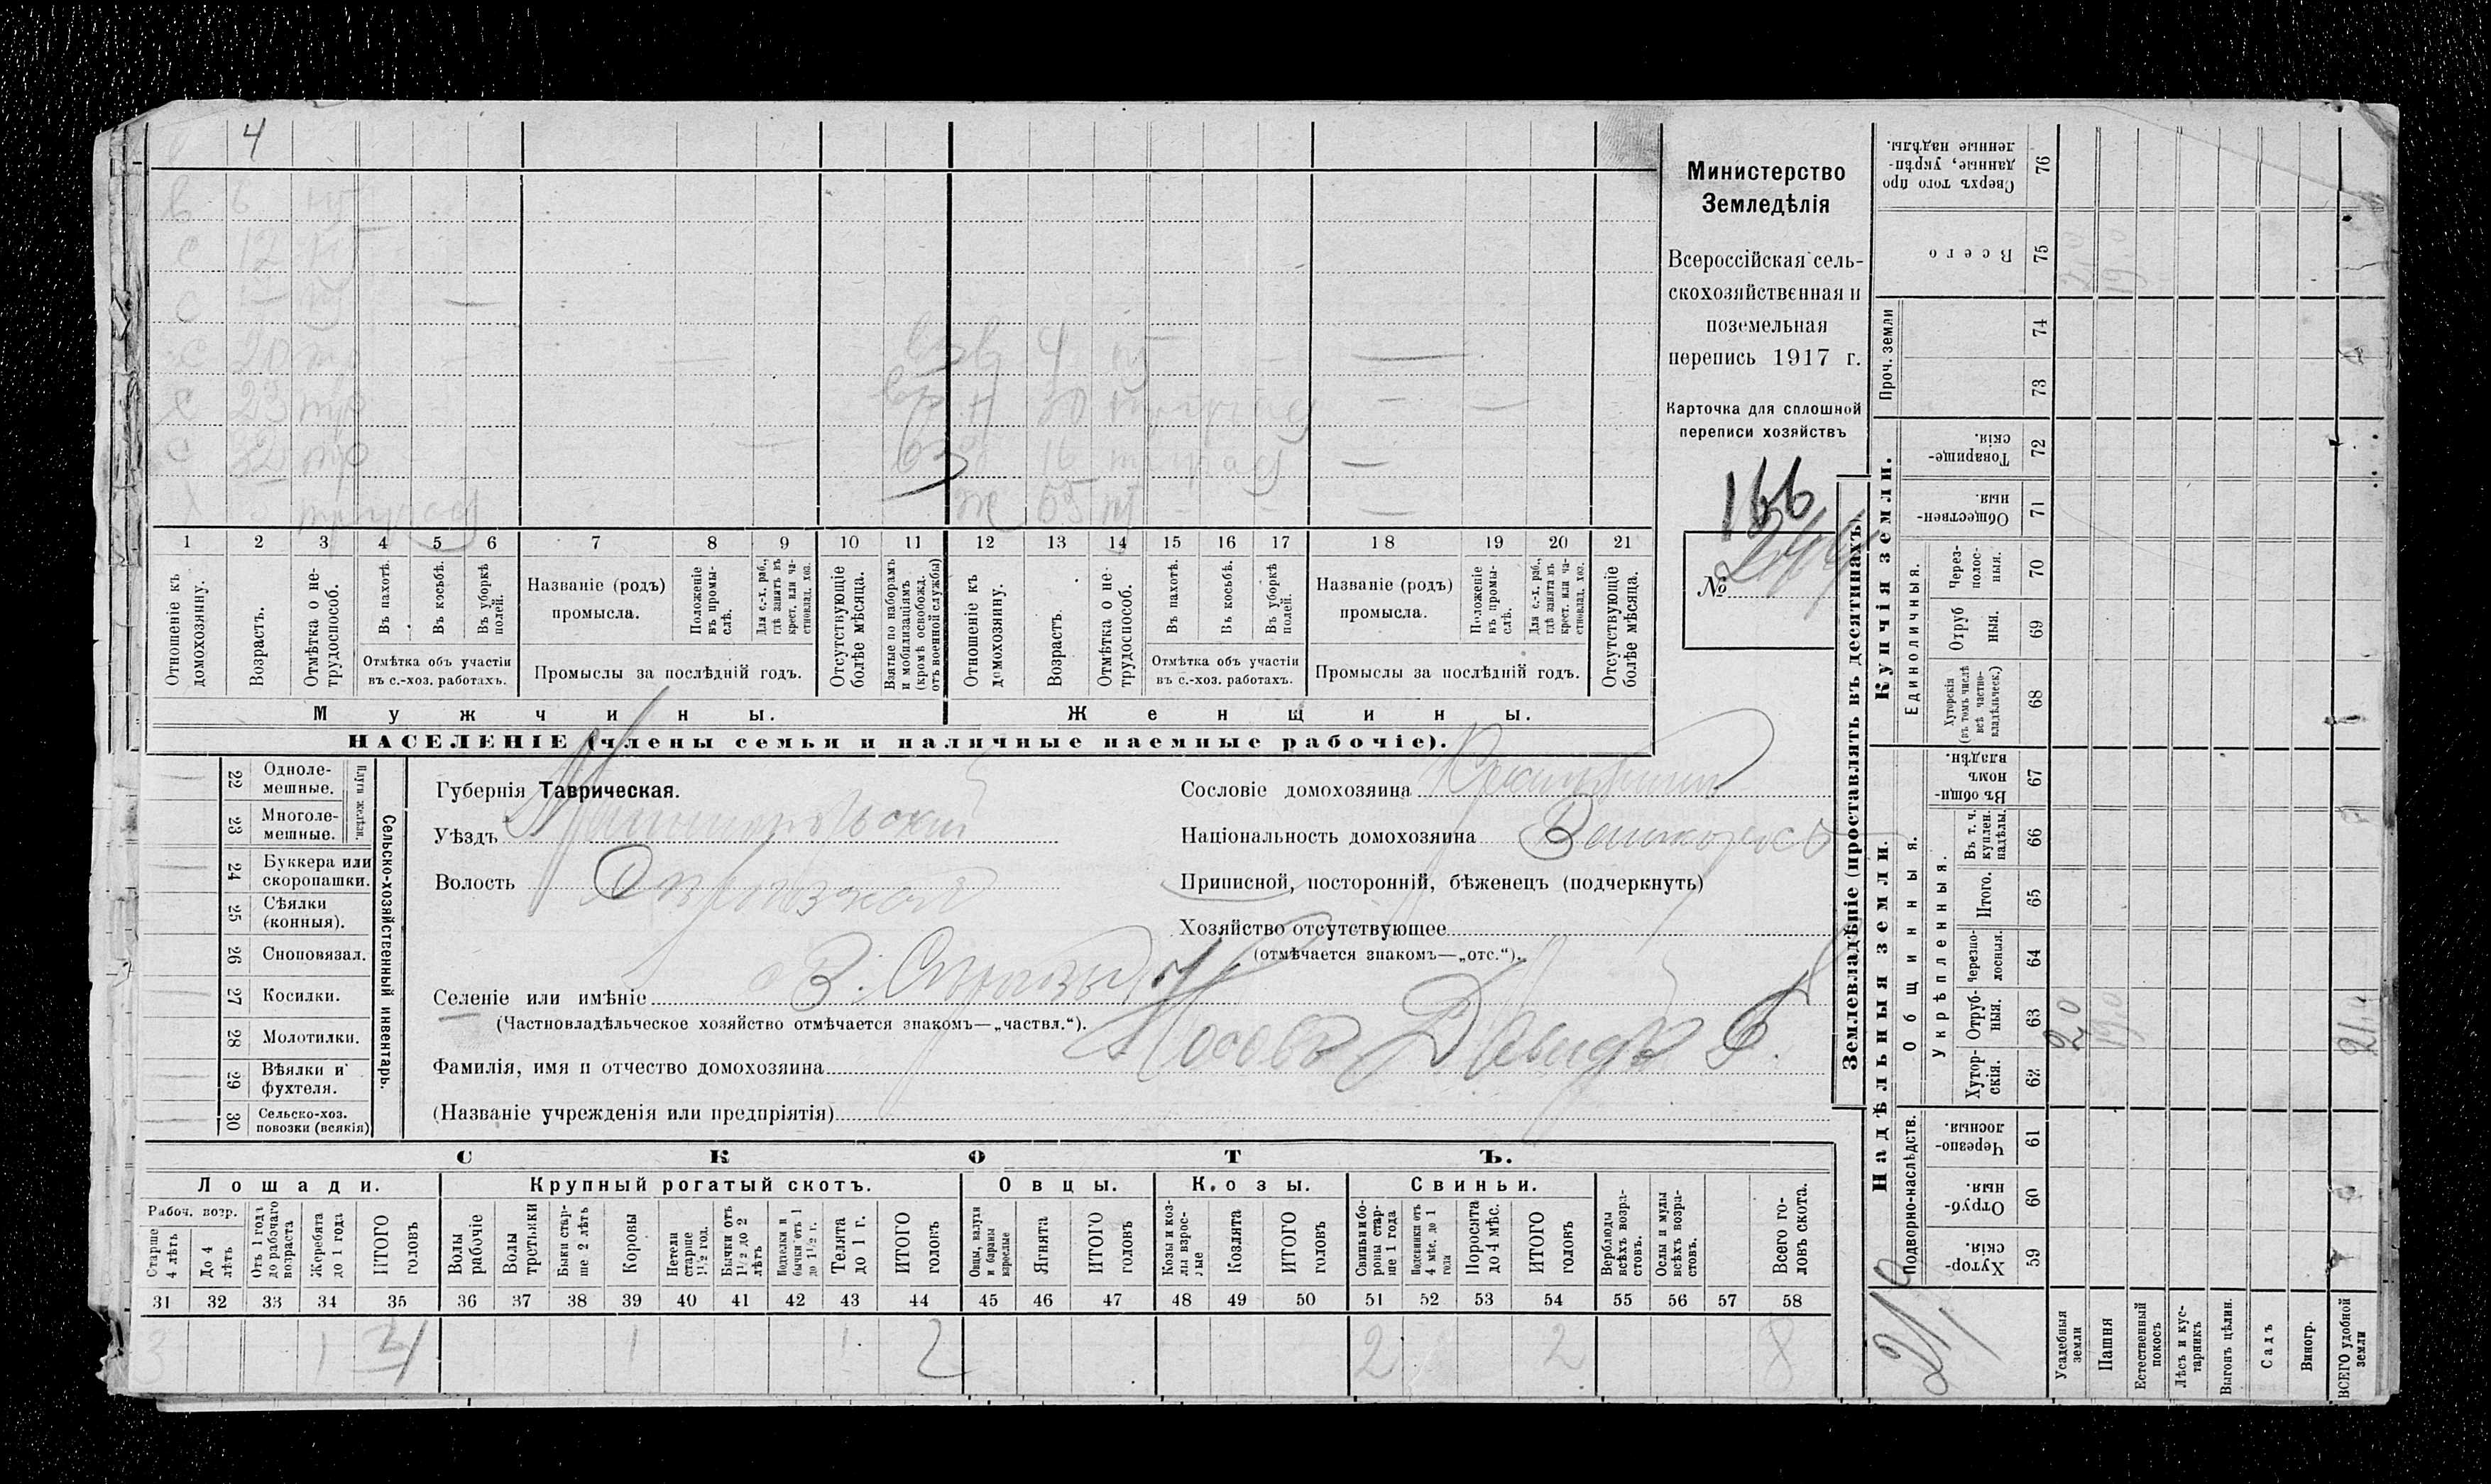 4
в 6 нт
с 12
с
с 20 тр
с 23 тр
с 32 тр
4 нт
16
ж 65 нт
1 2 3 4 5 6 7 8 9 10 11 12 13 14 15 16 17 18 19 20 21
Отношеніе къ домохозяину.
Возрастъ.
Отмѣтка о не-трудоспособ.
Въ пахотѣ.
Въ косьбѣ.
Въ уборкѣ полей.
Отмѣтка объ участіи
въ с.-хоз. работахъ.
Названіе (родъ)
промысла.
Положеніе въ промы-слѣ.
Для с.-х. раб., гдѣ занятъ въ крест. или ча-стновлад. хоз.
Промыслы за послѣдній годъ.
Отсутствующіе болѣе мѣсяца.
Взятые по наборамъ и мобилизаціямъ (кромѣ освобожд. отъ военной службы)
Отношеніе къ домохозяину.
Возрастъ.
Отмѣтка о не-трудоспособ.
Въ пахотѣ.
Въ косьбѣ.
Въ уборкѣ полей.
Отмѣтка объ участіи
въ с.-хоз. работахъ.
Названіе (родъ)
промысла.
Положеніе въ промы-слѣ.
Для с.-х. раб., гдѣ занята въ крест. или ча-стновлад. хоз.
Промыслы за послѣдній годъ.
Отсутствующіе болѣе мѣсяца.
Мужчины.
Женщины.
НАСЕЛЕНІЕ (члены семьи и наличные наемные рабочіе).
Министерство
Земледѣлія
Всероссійская сель-
скохозяйственная и
поземельная
перепись 1917 г.
Карточка для сплошной
переписи хозяйствъ
166
№ 244
22 Одноле-мешные.
23 Многоле-мешные.
Плуги желѣзн.
24 Буккера или скоропашки.
25 Сѣялки (конныя).
26 Сноповязал.
27 Косилки.
28 Молотилки.
29 Вѣялки и фухтеля.
30 Сельско-хоз. повозки (всякія)
Сельско-хозяйственный инвентарь.
Губернія Таврическая.
Уѣздъ Мелитопольскій
Волость
Селеніе или имѣніе
(Частновладѣльческое хозяйство отмѣчается знакомъ—„частвл.“).
Фамилія, имя и отчество домохозяина Носовъ Давидъ
(Названіе учрежденія или предпріятія)
Сословіе домохозяина
Національность домохозяина
Приписной, посторонній, бѣженецъ (подчеркнуть)
Хозяйство отсутствующее
(отмѣчается знакомъ—„отс.“).
СКОТЪ.
Лошади.
Крупный рогатый скотъ.
Овцы.
Козы.
Свиньи.
Рабоч. возр.
Старше 4 лѣтъ
До 4 лѣтъ
Отъ 1 года до рабочаго возраста
Жеребята до 1 года
ИТОГО головъ
Волы рабочіе
Волы третьяки
Быки стар-ше 2 лѣтъ
Коровы
Нетели старше 1½ год.
Бычки отъ 1½ до 2 лѣтъ
Подтелки и бычки отъ 1 до 1½ г.
Телята до 1 г.
ИТОГО головъ
Овцы, валухи и бараны взрослые
Ягнята
ИТОГО головъ
Козы и коз-лы взрос-лые
Козлята
ИТОГО головъ
Свиньи и бо-ровы стар-ше 1 года
Подсвинки отъ 4 мѣс. до 1 года
Поросята до 4 мѣс.
ИТОГО головъ
Верблюды всѣхъ возра-стовъ.
Ослы и мулы всѣхъ возра-стовъ.
Всего го-ловъ скота.
31 32 33 34 35 36 37 38 39 40 41 42 43 44 45 46 47 48 49 50 51 52 53 54 55 56 57 58
3 1 4 1 1 2 2 2 8
Землевладѣніе (проставлять въ десятинахъ)
Надѣльныя земли.
Купчія земли.
Проч. земли
Подворно-наслѣдств.
Общинныя.
Укрѣпленныя.
Единоличныя.
59 Хутор-скія.
60 Отруб-ныя.
61 Черезпо-лосныя.
62 Хутор-скія.
63 Отруб-ныя.
64 Черезпо-лосныя.
65 Итого.
66 Въ т. ч. куплен. надѣлы.
67 Въ общи-номъ владѣн.
68 Хуторскія (въ томъ числѣ всѣ частно-владѣльческ.)
69 Отруб ныя.
70 Через-полос-ныя.
71 Обществен-ныя.
72 Товарище-скія.
73
74
75 Всего
76 Сверхъ того про данные, укрѣп-ленные надѣлы.
Усадебныя земли
Пашня
Естественный покосъ
Лѣсъ и кус-тарникъ
Выгонъ цѣлин.
Садъ
Виногр.
ВСЕГО удобной земли
2,0
19,0
21,0
2,0
19,0
21,0